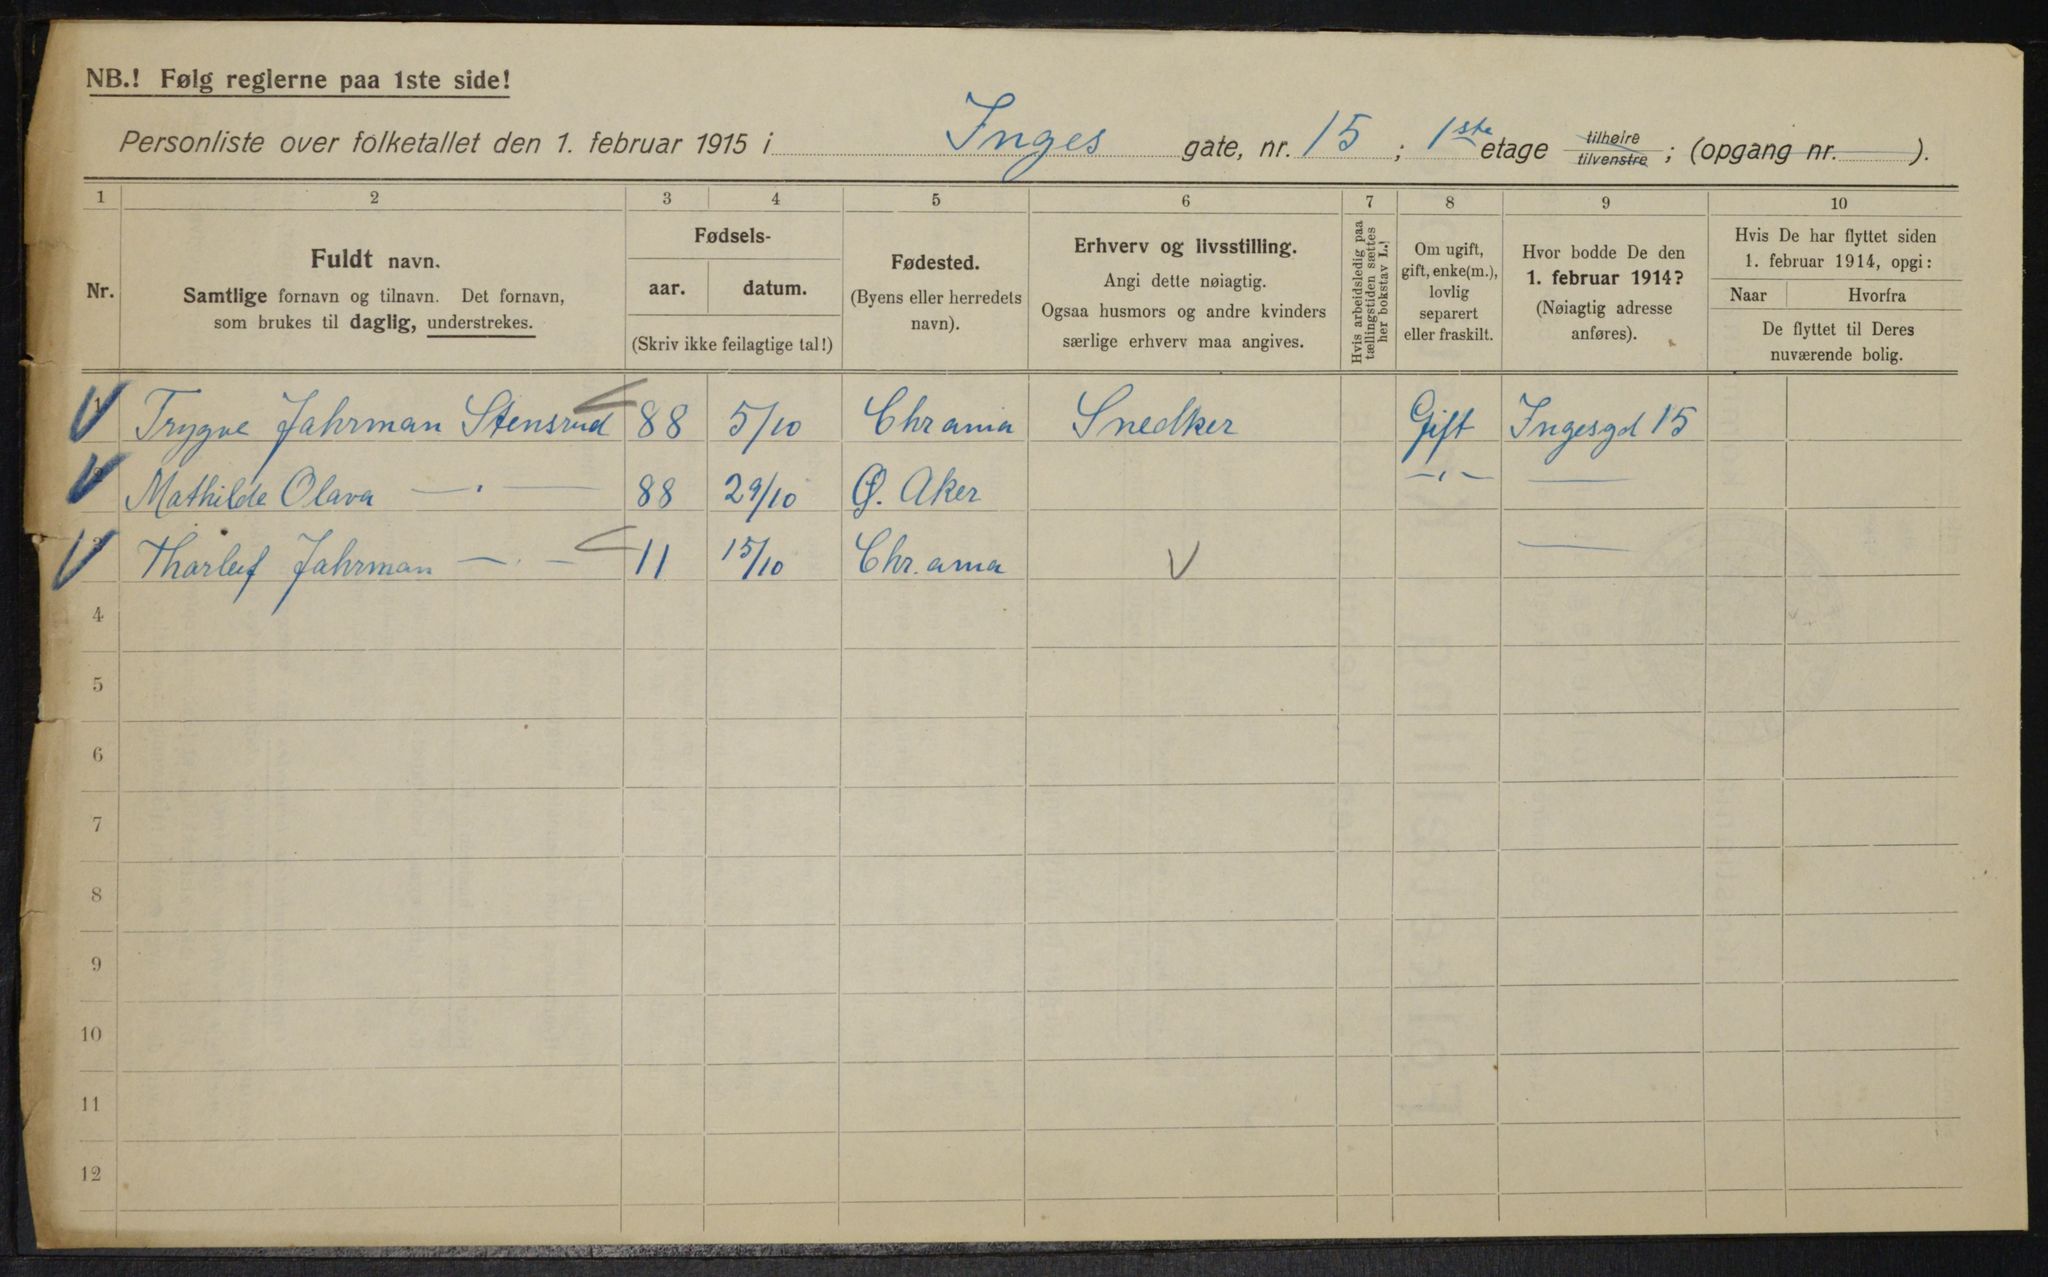 NB.! Følg reglerne paa 1ste side!
Personliste over folketallet den 1. februar 1915 i Inges gate, nr. 15 ; 1ste etage tilhøire tilvenstre ; (opgang nr. ).
1 2 3 4 5 6 7 8 9 10
Nr.
Fuldt navn.
Samtlige fornavn og tilnavn. Det fornavn,
som brukes til daglig, understrekes.
Fødsels-
aar. datum.
(Skriv ikke feilagtige tal!)
Fødested.
(Byens eller herredets
navn).
Erhverv og livsstilling.
Angi dette nøiagtig.
Ogsaa husmors og andre kvinders
særlige erhverv maa angives.
Hvis arbeidsledig paa
tællingstiden sættes
her bokstav L.!
Om ugift,
gift, enke(m.),
lovlig
separert
eller fraskilt.
Hvor bodde De den
1. februar 1914?
(Nøiagtig adresse
anføres).
Hvis De har flyttet siden
1. februar 1914, opgi:
Naar Hvorfra
De flyttet til Deres
nuværende bolig.
1 Trygve Jahrman Stensrud 88 5/10 Chrania Snedker Gift Ingesgd 15
2 Mathilde Olava —〃— 88 29/10 Ø. Aker —〃— —
3 Thorleif Jahrman —〃— 11 15/10 Chr.ania —
4
5
6
7
8
9
10
11
12